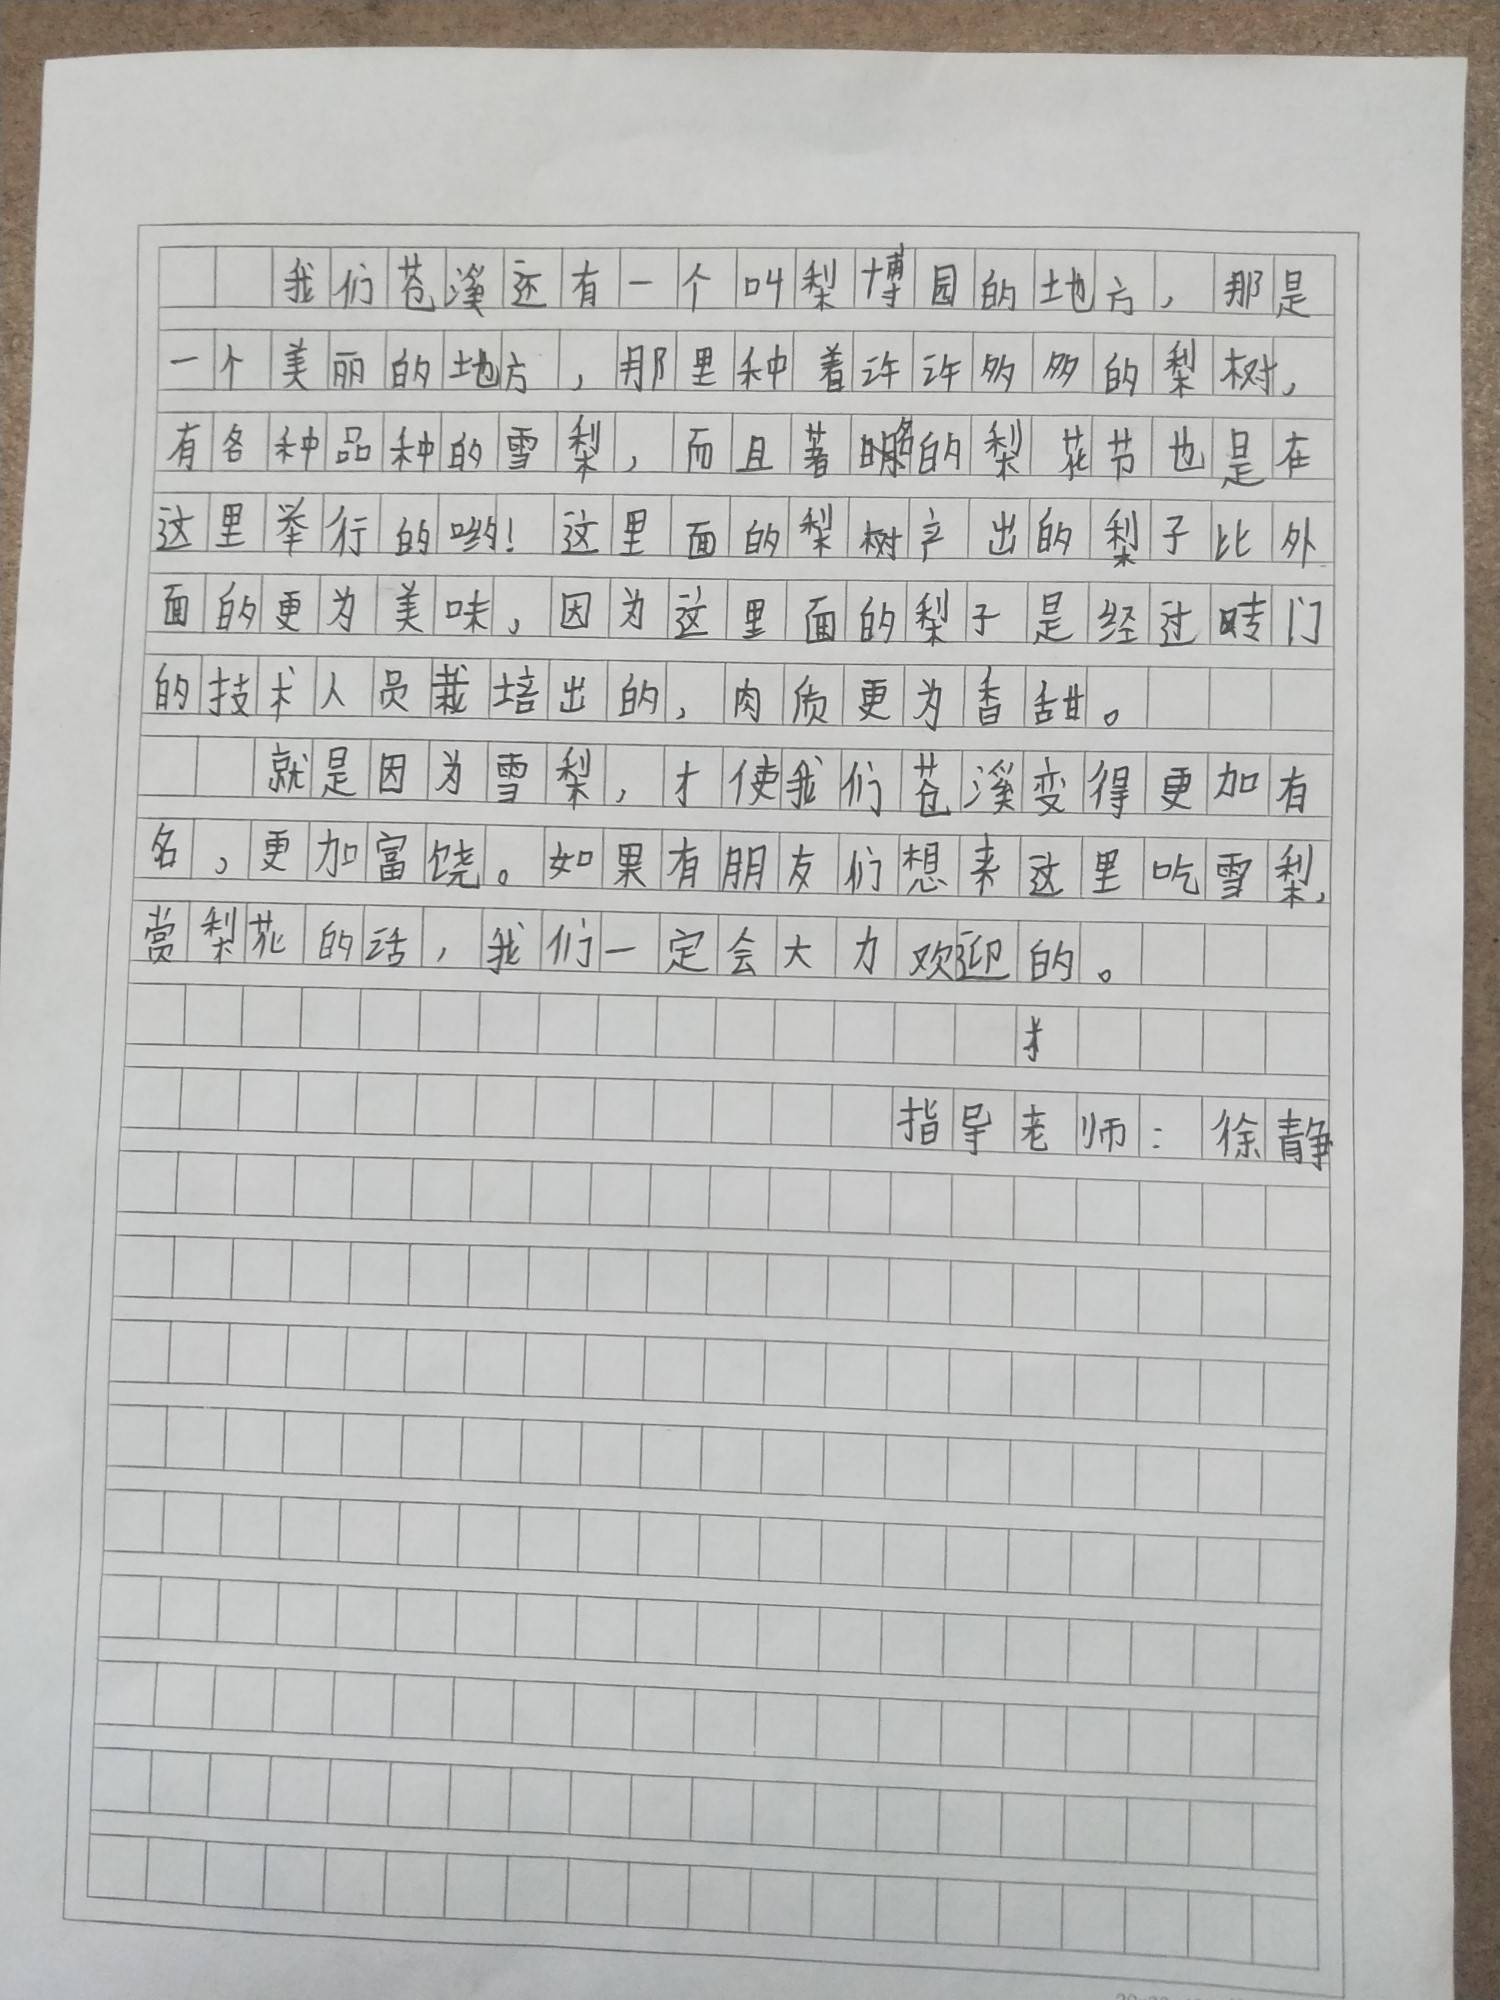 我们苍溪还有一个叫梨博园的地方，那是
一个美丽的地方，那里种着许许多多的梨树，
有各种品种的雪梨，而且著名的梨花节也是在
这里举行的哟！这里面的梨树产出的梨子比外
面的更为美味，因为这里面的梨子是经过专门
的技术人员栽培出的，肉质更为香甜。
就是因为雪梨，才使我们苍溪变得更加有
名，更加富饶。如果有朋友们想来这里吃雪梨，
赏梨花的话，我们一定会大力欢迎的。
指导老师：徐静